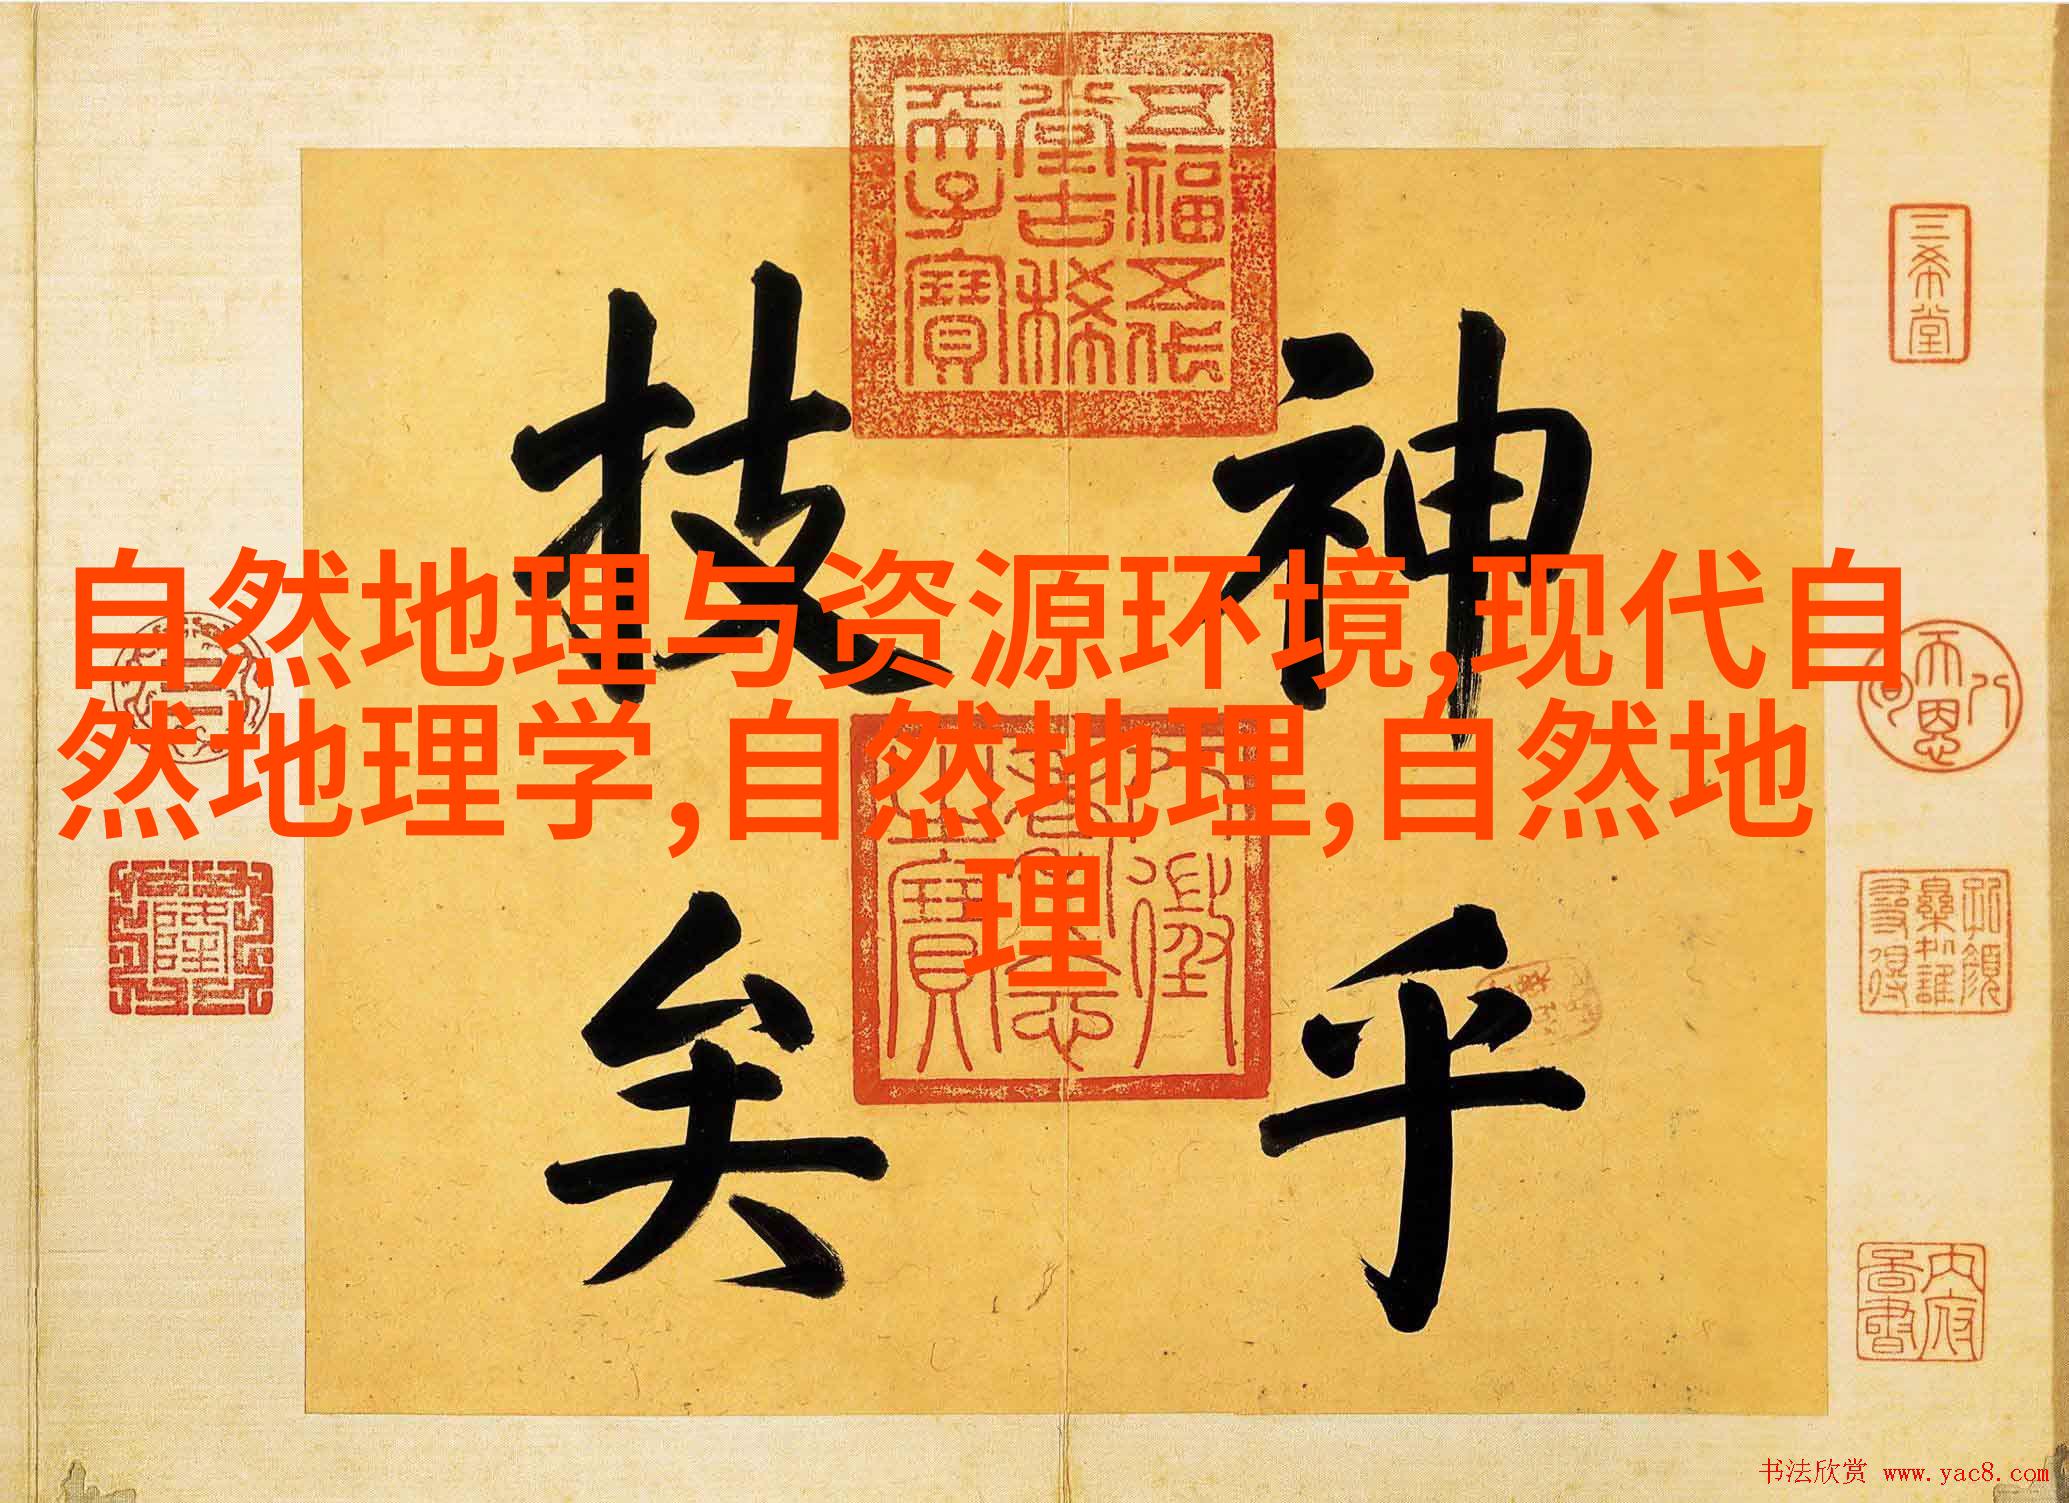 五福五代
堂古稀
天子寶
三希堂
神乎
技矣
自然地理与资源环境,现代自
然地理学,自然地理,自然地
理
八
徵
耄
念
之
寶
内府
书法欣赏 www.yac8.com